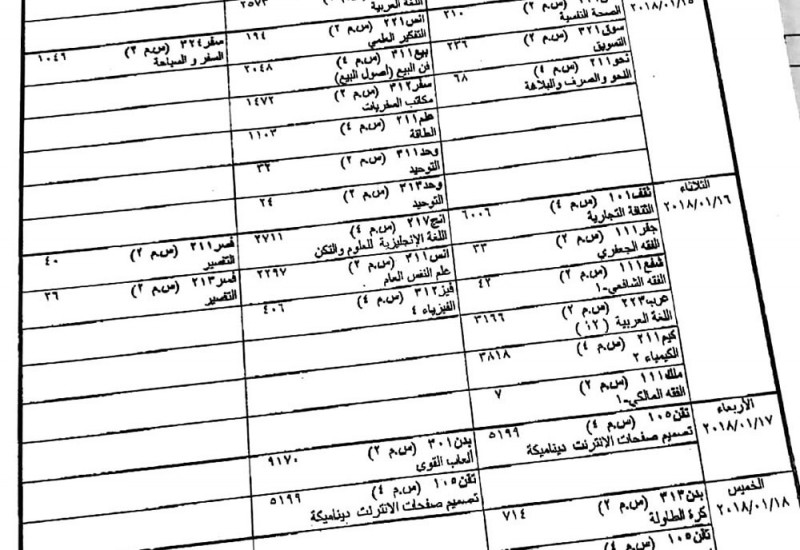 ٢٠١٨/٠١/١٥
٢١٠
الصحة النفسية
سوق٣٢١ (س.م ٢) ٢٣٦
التسويق
نحو٢١١ (س.م ٤) ٦٨
النحو والصرف والبلاغة
٢٥٧٣
اللغة العربية
انس٢٢١ (س.م ٢) ١٩٤
التفكير العلمي
بيع٣١١ (س.م ٤) ٢٠٤٨
فن البيع (أصول البيع)
سفر٣١٢ (س.م ٢) ١٤٧٢
مكاتب السفريات
علم٢١١ (س.م ٤) ١١٠٣
الطاقة
وحد٣١١ (س.م ٢) ٣٢
التوحيد
وحد٣١٣ (س.م ٢) ٢٤
التوحيد
سفر٣٢٤ (س.م ٢) ١٠٤٦
السفر و السياحة
الثلاثاء
٢٠١٨/٠١/١٦
ثقف١٠١ (س.م ٤) ٦٠٠٦
الثقافة التجارية
جفر١١١ (س.م ٢) ٣٣
الفقه الجعفري
شفع١١١ (س.م ٢) ٤٢
الفقه الشافعي-١
عرب٢٢٣ (س.م ٢) ٣١٦٦
اللغة العربية (١٢)
كيم٢١١ (س.م ٤) ٣٨١٨
الكيمياء ٢
ملك١١١ (س.م ٢) ٧
الفقه المالكي-١
انج٢١٧ (س.م ٤) ٢٧١١
اللغة الإنجليزية للعلوم والتكن
انس٣١١ (س.م ٢) ٢٢٩٧
علم النفس العام
فيز٣١٢ (س.م ٤) ٤٠٦
الفيزياء ٤
فسر٢١١ (س.م ٢) ٤٠
التفسير
فسر٢١٣ (س.م ٢) ٢٦
التفسير
الأربعاء
٢٠١٨/٠١/١٧
تقن١٠٥ (س.م ٤) ٥١٩٩
تصميم صفحات الانترنت ديناميكة
بدن٣٠١ (س.م ٢) ٩١٧٠
ألعاب القوى
تقن١٠٥ (س.م ٤) ٥١٩٩
تصميم صفحات الانترنت ديناميكة
الخميس
٢٠١٨/٠١/١٨
بدن٣١٣ (س.م ٢) ٧١٤
كرة الطاولة
تقن١٠٥ (س.م ٤)